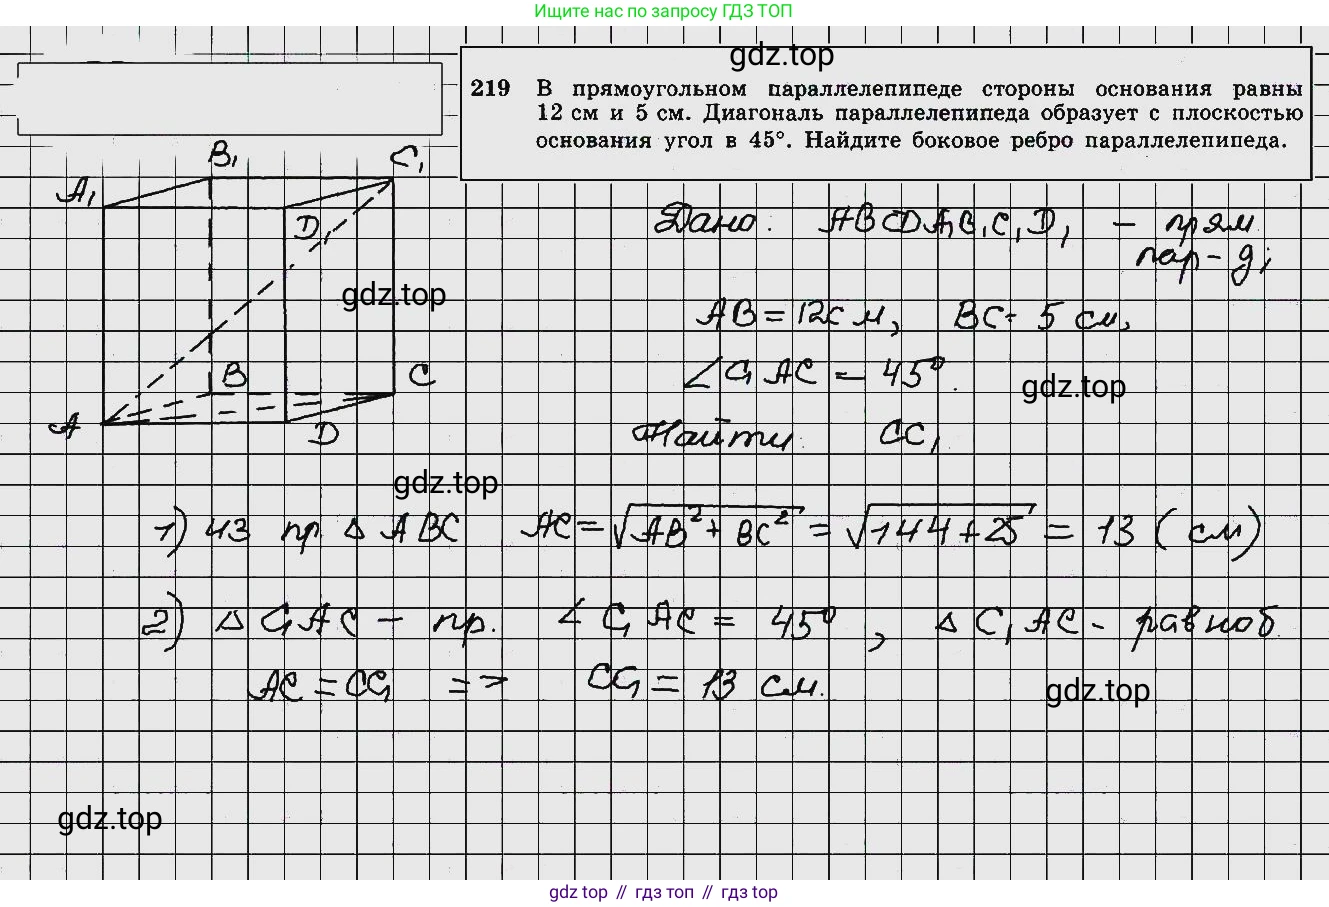 Ищите нас по запросу ГДЗ ТОП
gdz.top
219 В прямоугольном параллелепипеде стороны основания равны
12 см и 5 см. Диагональ параллелепипеда образует с плоскостью
основания угол в 45°. Найдите боковое ребро параллелепипеда.
B₁ C₁
A₁ D₁
gdz.top
B C
A D
Дано: ABCDA₁B₁C₁D₁ – прям
пар-д;
AB = 12 см, BC = 5 см,
∠C₁AC = 45°.
gdz.top
Найти: CC₁
gdz.top
1) из пр. Δ ABC AC = √(AB² + BC²) = √(144+25) = 13 (см)
2) Δ C₁AC – пр. ∠C₁AC = 45°, Δ C₁AC - равноб
AC = CC₁ => CC₁ = 13 см.
gdz.top
gdz.top
gdz top // гдз топ // gdz top